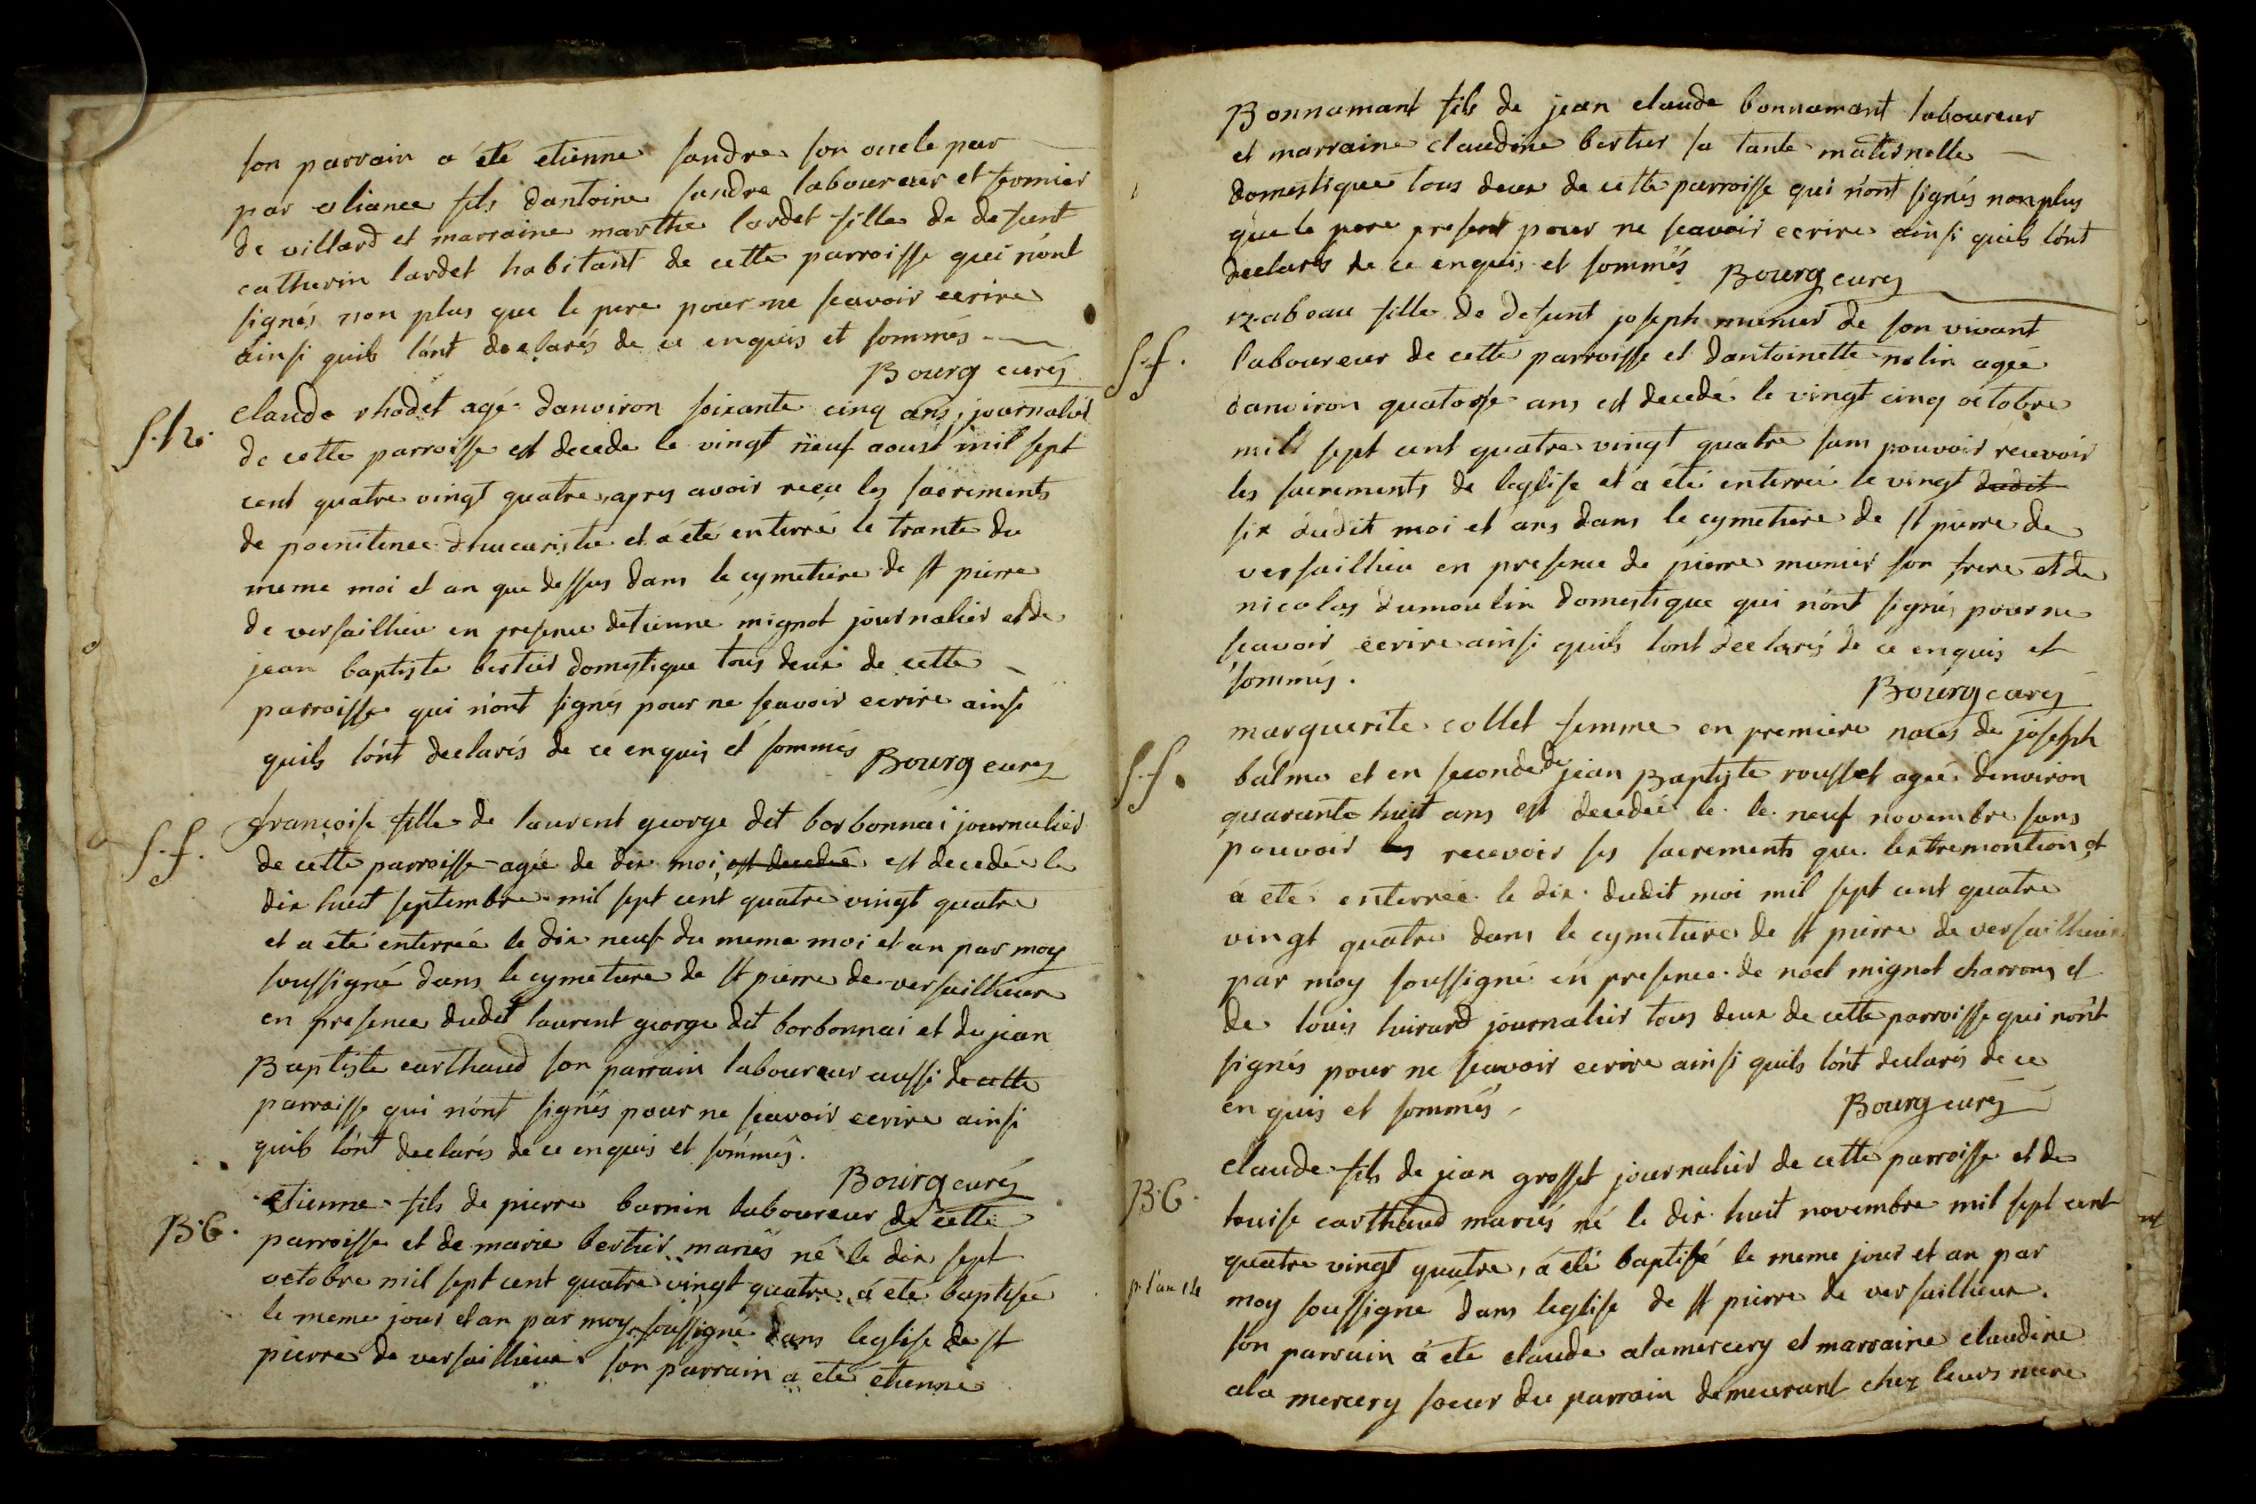 son parrain a été etienne sandre son oncle par
par aliance fils dantoine sandre laboureur et fermier
de villard et marraine marthe lardet fille de defunt
catherin lardet habitant de cette parroisse qui n'ont
signés non plus que le pere pour ne scavoir ecrire
ainsi quils l'ont declarés de ce enquis et sommés
Bourg curé
S.h. claude rhodet agé danviron soixante cinq ans, journalier
de cette parroisse est decede le vingt neuf aoust mil sept
cent quatre vingt quatre, apres avoir reçu les sacrements
de poenitence d'eucaristie et a été enterré le trante du
meme moi et an que dessus dans le cymetiere de st pierre
de versaillieu en presence detienne mignot journalier et de
jean baptiste bertier domestique tous deux de cette
parroisse qui n'ont signés pour ne scavoir ecrire ainsi
quils l'ont declarés de ce enquis et sommés Bourg curé
S.f. françoise fille de laurent george dit borbonnai journalier
de cette parroisse agée de dix moi, est decedée est decedée le
dix huit septembre mil sept cent quatre vingt quatre
et a été enterrée le dix neuf du meme moi et an par moy
soussigné dans le cymetiere de st pierre de versaillieux
en presence dudit laurent george dit borbonnai et de jean
Baptiste carthaud son parrain laboureur aussi de cette
parroisse qui n'ont signés pour ne scavoir ecrire ainsi
quils l'ont declarés de ce enquis et sommés.
Bourg curé
B.G. etienne fils de pierre burnin laboureur de cette
parroisse et de marie bertier mariés né le dix sept
octobre mil sept cent quatre vingt quatre a été baptisé
le meme jour et an par moy soussigné dans leglise de st
pierre de versaillieux son parrain a été etienne
Bonnamant fils de jean claude bonnamant laboureur
et marraine claudine bertier sa tante maternelle
domestiques tous deux de cette parroisse qui n'ont signés non plus
que le pere present pour ne scavoir ecrire ainsi quils l'ont
declarés de ce enquis et sommés Bourg curé
S.f. izabeau fille de defunt joseph munier de son vivant
laboureur de cette parroisse et dantoinette nolin agée
danviron quatorse ans est decedé le vingt cinq octobre
mil sept cent quatre vingt quatre sans pouvoir recevoir
les sacrements de leglise et a été enterrée le vingt dudit
six dudit moi et ans dans le cymetiere de st pierre de
versaillieu en presence de pierre munier son frere et de
nicolas dumoulin domestique qui n'ont signés pour ne
scavoir ecrire ainsi quils l'ont declarés de ce enquis et
sommés.
Bourg curé
S.f. marguerite collet femme en premiere noces de joseph
balme et en seconde de jean Baptiste rousset agée denviron
quarante huit ans est decedée le le neuf novembre sans
pouvoir les recevoir ses sacrements que lextremontion et
a été enterrée le dix dudit moi mil sept cent quatre
vingt quatre dans le cymetiere de st pierre de versaillieux
par moy soussigné en presence de noel mignot charron et
de louis huirard journalier tous deux de cette parroisse qui n'ont
signés pour ne scavoir ecrire ainsi quils l'ont declarés de ce
enquis et sommés
Bourg curé
B.G. claude fils de jean grosset journalier de cette parroisse et de
louise carthaud mariés né le dix huit novembre mil sept cent
quatre vingt quatre, a été baptisé le meme jour et an par
moy soussigné dans leglise de st pierre de versaillieux.
son parrain a été claude alamercery et marraine claudine
ala mercery soeur du parrain demeurant chez leurs mere